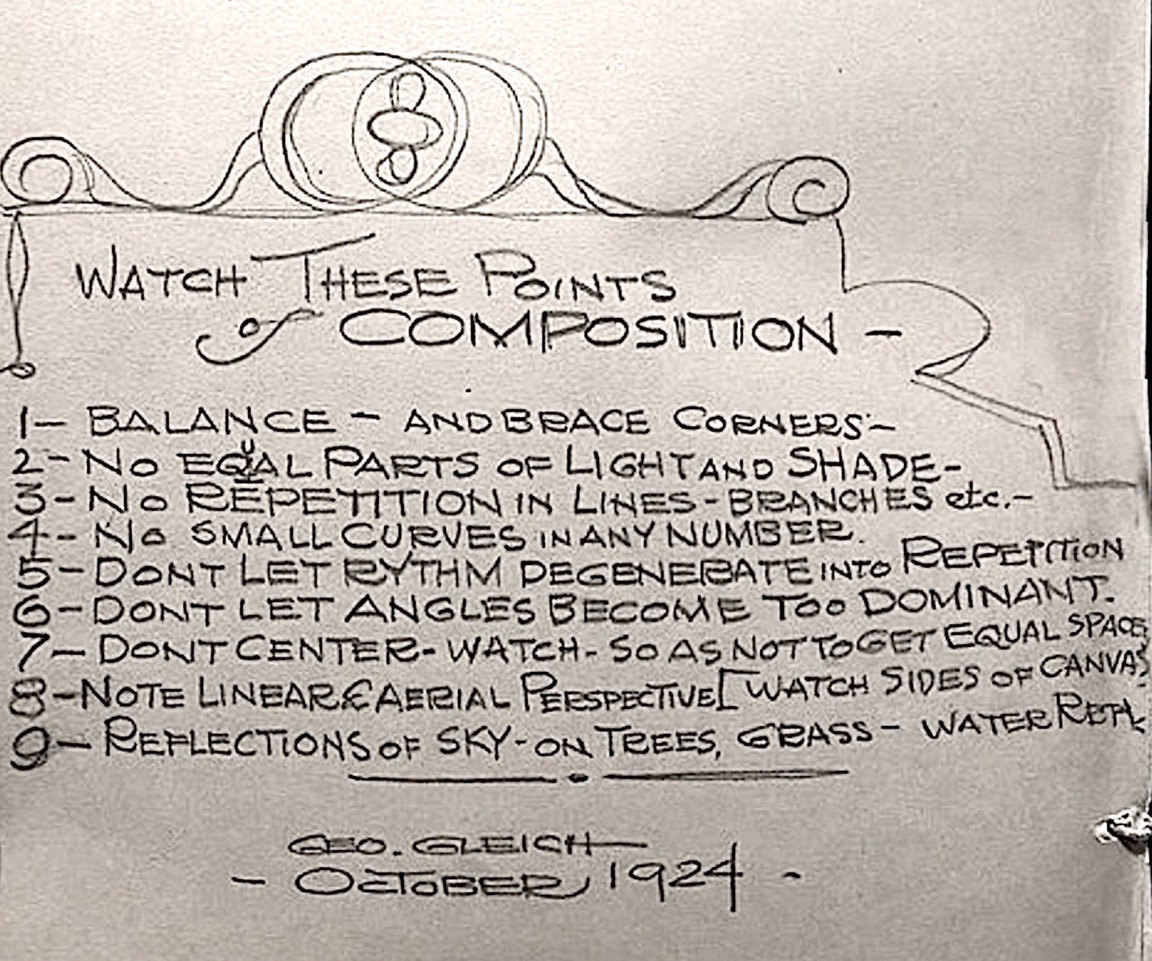 WATCH THESE POINTS
of COMPOSITION -
1- BALANCE - AND BRACE CORNERS-
2- NO EQUAL PARTS OF LIGHT AND SHADE-
3- NO REPETITION IN LINES - BRANCHES etc.-
4- NO SMALL CURVES IN ANY NUMBER.
5- DONT LET RYTHM DEGENERATE INTO REPETITION
6- DONT LET ANGLES BECOME TOO DOMINANT.
7- DONT CENTER- WATCH- SO AS NOT TO GET EQUAL SPACE
8- NOTE LINEAR & AERIAL PERSPECTIVE [WATCH SIDES OF CANVAS
9- REFLECTIONS OF SKY- ON TREES, GRASS- WATER
GEO. GLEICH
- OCTOBER 1924 -